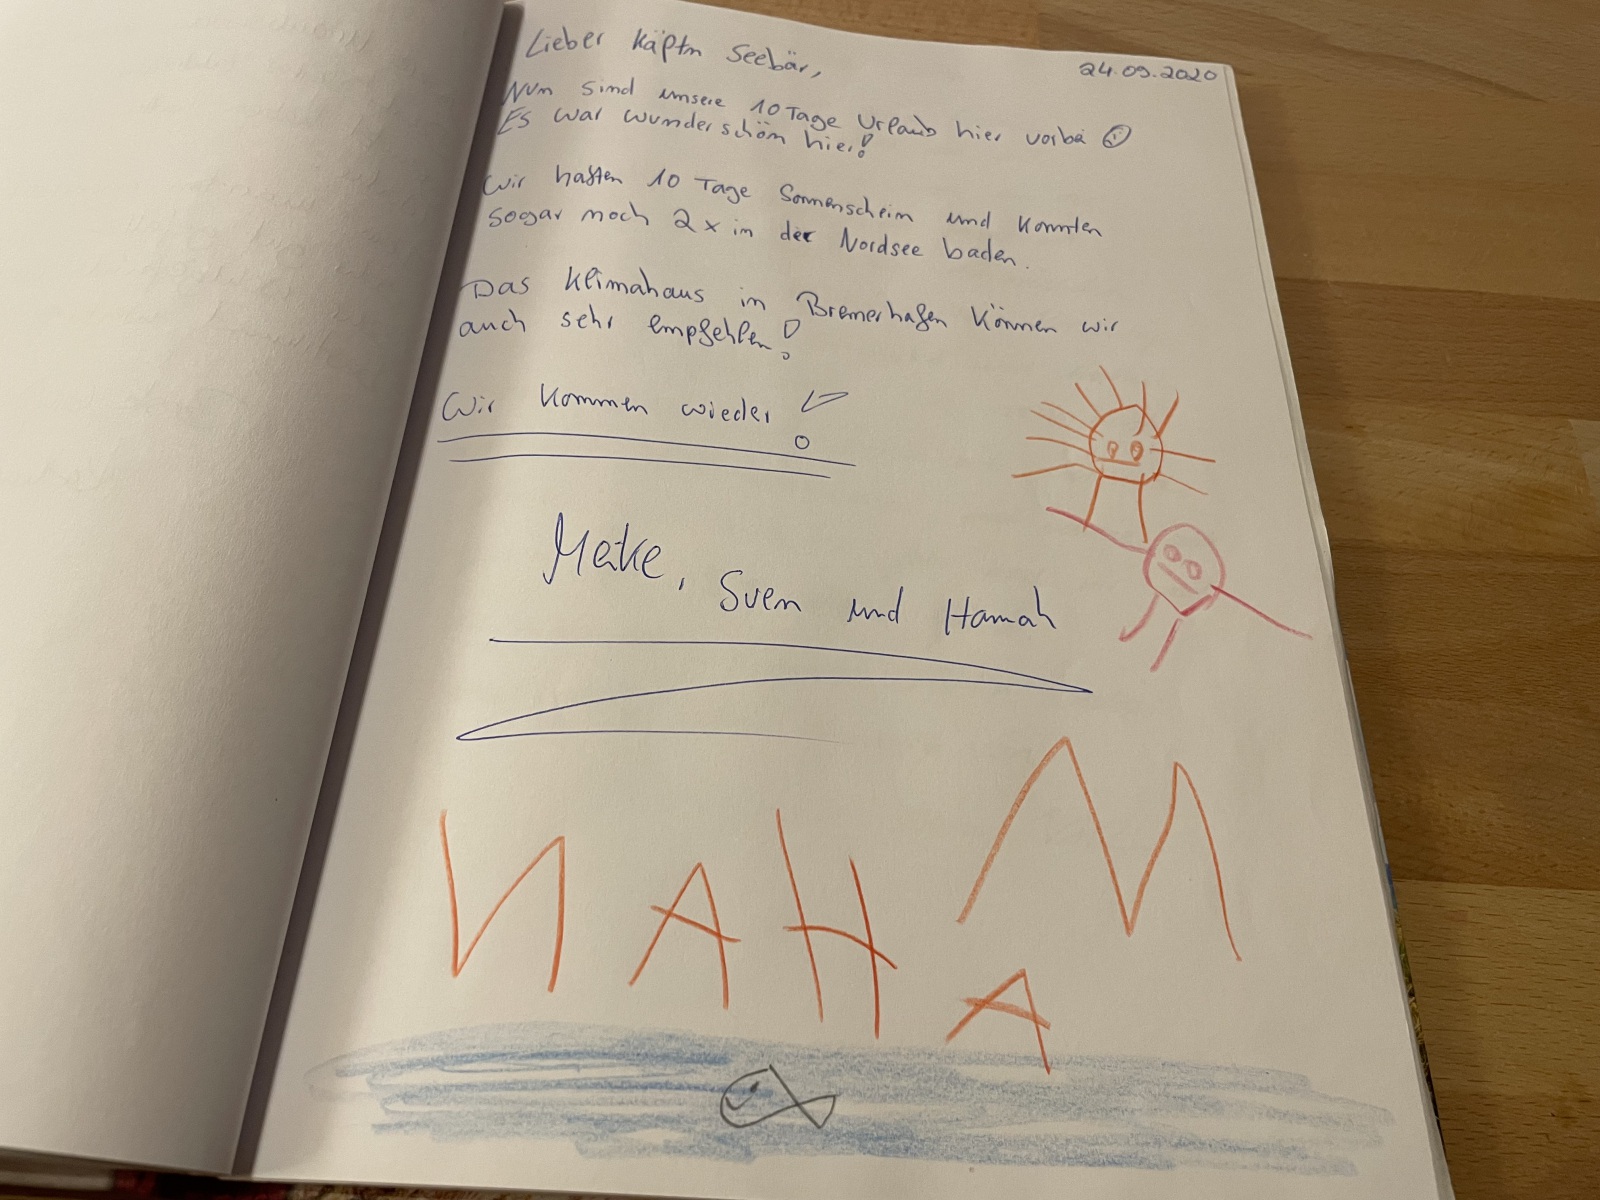 Lieber Käptn Seebär,
24.09.2020
Nun sind unsere 10 Tage Urlaub hier vorbei
Es war wunderschön hier!
Wir hatten 10 Tage Sonnenschein und konnten
sogar noch 2x in der Nordsee baden.
Das Klimahaus in Bremerhafen können wir
auch sehr empfehlen!
Wir kommen wieder!
Meike, Sven und Hannah
NAHM
A